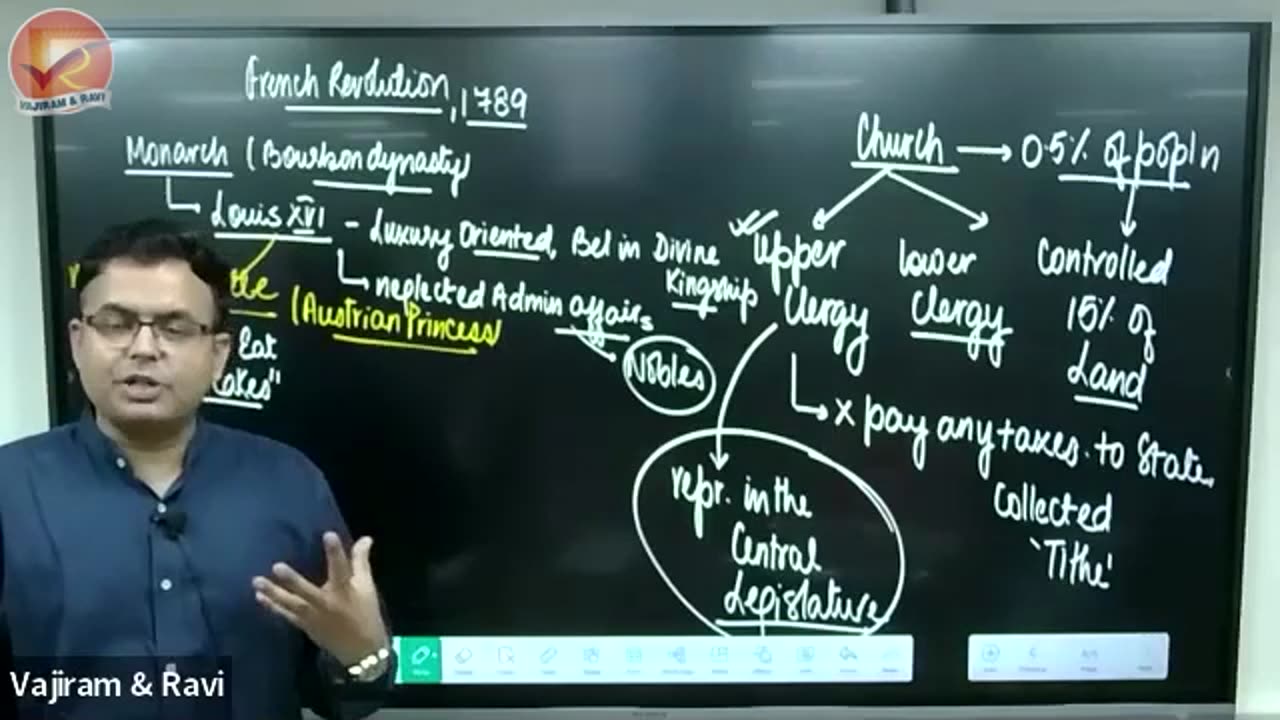 VAJIRAM & RAVI
French Revolution, 1789
Monarch (Bourbon dynasty)
Louis XVI - Luxury Oriented, Bel in Divine Kingship
neglected Admin affairs
Nobles
(Austrian Princess)
Eat
Cakes"
Church → 0.5% of popln
Upper
Clergy
lower
Clergy
Controlled
15% of
Land
x pay any taxes to State.
Collected
'Tithe'
repr. in the
Central
Legislature
Vajiram & Ravi